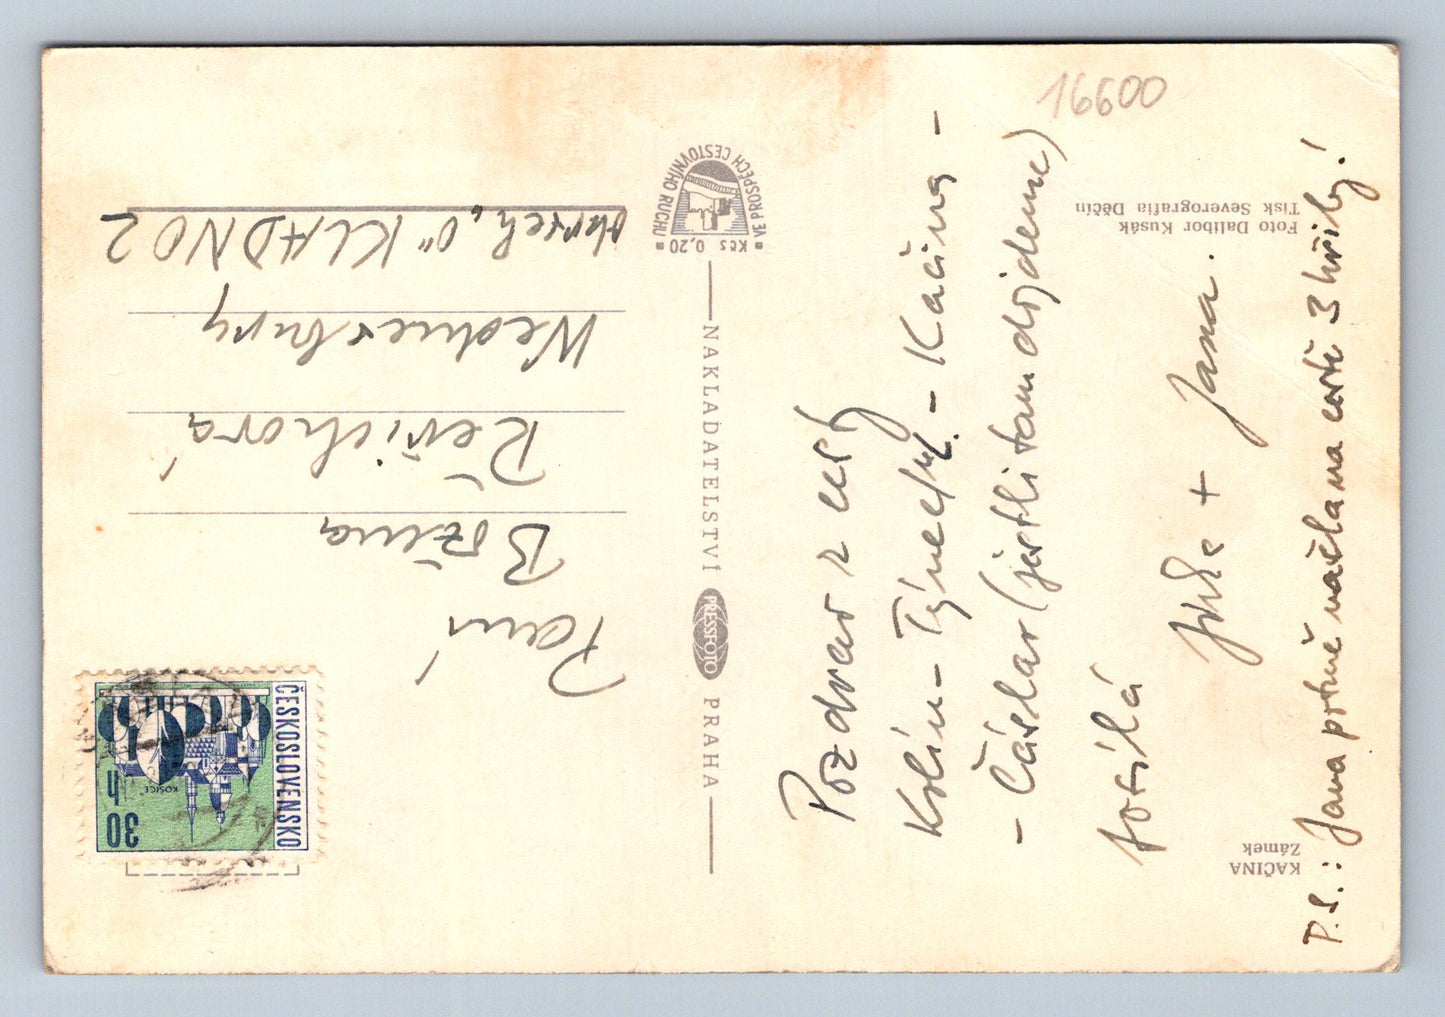 KAČINA
Zámek
Pozdrav z cesty
Kolín – Týnec/L. – Kačina –
– Čáslav (jestli tam dojdeme)
posílá
Jirka + Jana.
P.S.: Jana právě našla na cestě 3 hřiby!
Foto Dalibor Kusák
Tisk Severografia Děčín
16600
VE PROSPĚCH CESTOVNÍHO RUCHU
Kčs 0,20
NAKLADATELSTVÍ PRESSFOTO PRAHA
ČESKOSLOVENSKO
30 h
KOŠICE
Paní
Božena
Řeřichová
"0" KLADNO 2